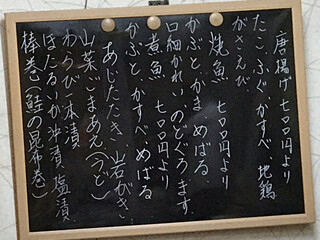 唐揚げ 七〇〇円より
たこ ふぐ かすべ 地鶏
がさえび
焼魚 七〇〇円より
かぶと かま めばる
口細かれい のどぐろ ます
煮魚 七〇〇円より
かぶと かすべ めばる
あじたたき 岩がき
山菜ごまあえ(うど)
わらび本漬
ほたるいか沖漬 塩漬
棒巻(鮭の昆布巻)